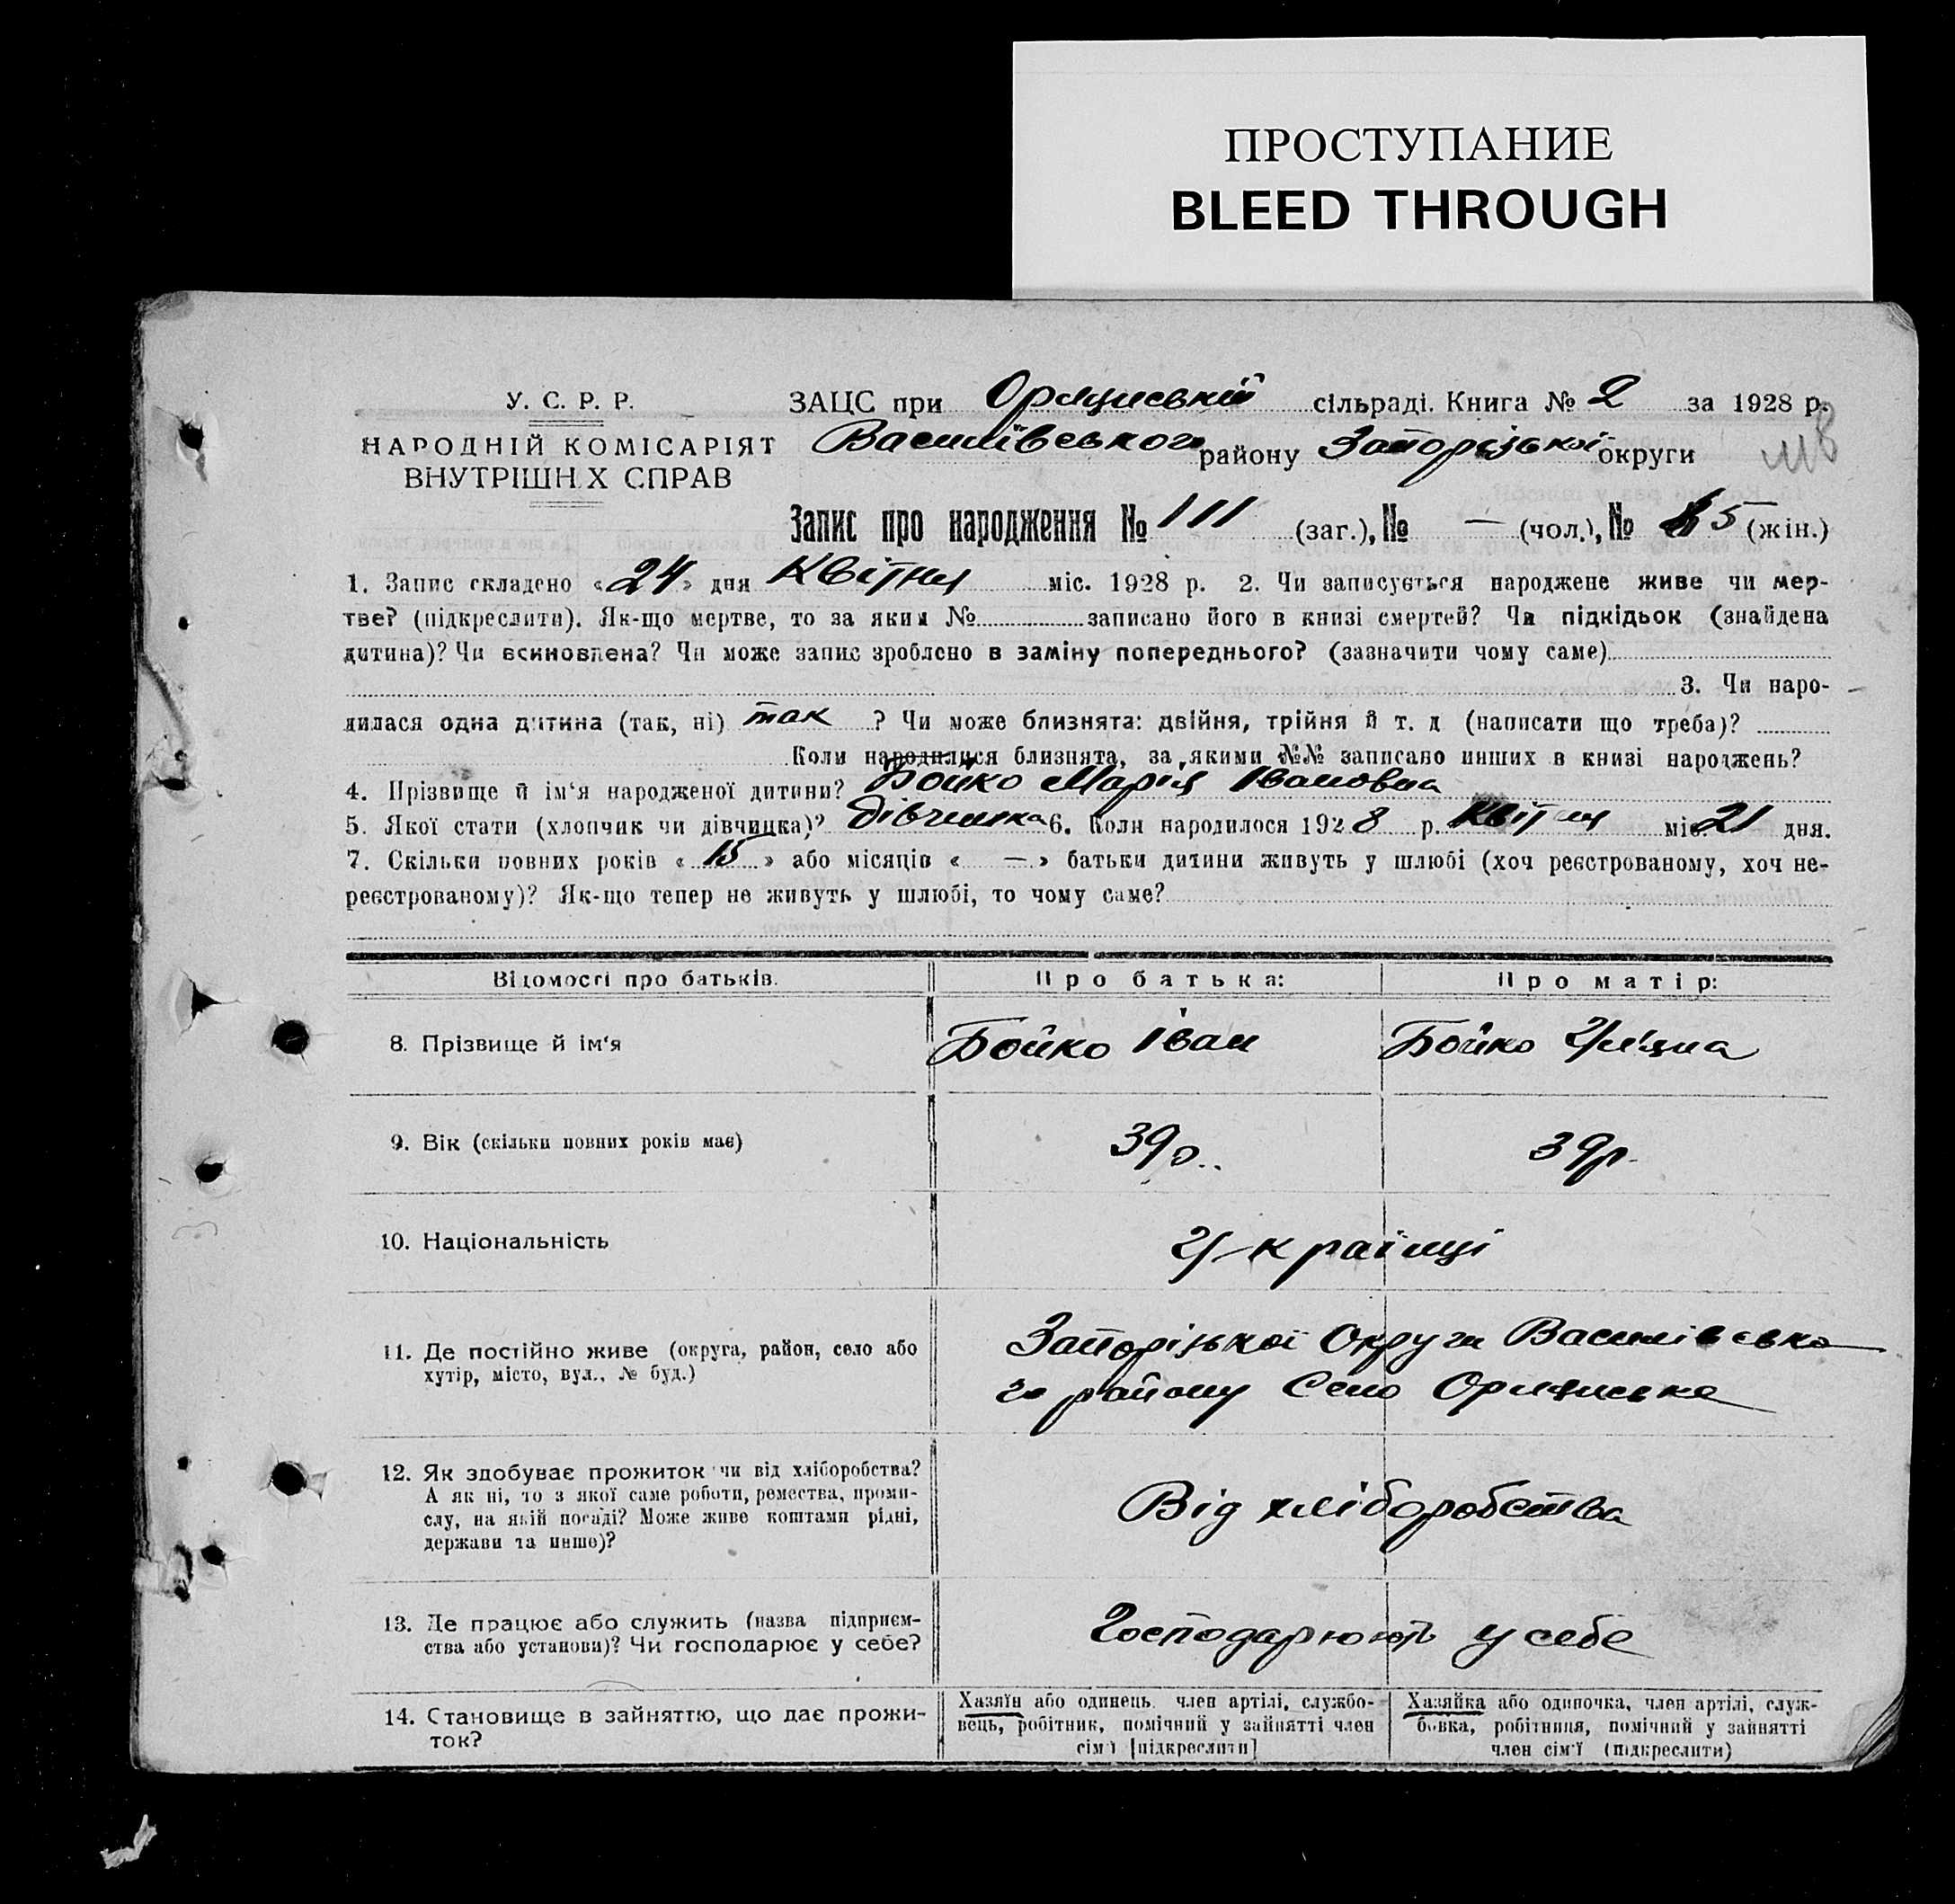 ПРОСТУПАНИЕ
BLEED THROUGH
У. С. Р. Р.
НАРОДНІЙ КОМІСАРІЯТ
ВНУТРІШН Х СПРАВ
ЗАЦС при сільраді. Книга № 2 за 1928 р.
Василівського району Запорізької округи
Запис про народження № 111 (заг.), № — (чол.), № 5 (жін.)
1. Запис складено «24» дня Квітня міс. 1928 р. 2. Чи записується народжене живе чи мер-
тве? (підкреслити). Як-що мертве, то за яким № записано його в книзі смертей? Чи підкідьок (знайдена
дитина)? Чи всиновлена? Чи може запис зроблено в заміну попереднього? (зазначити чому саме)
3. Чи наро-
дилася одна дитина (так, ні) так ? Чи може близнята: двійня, трійня й т. д (написати що треба)?
Коли народилися близнята, за якими №№ записано инших в книзі народжень?
4. Прізвище й ім‘я народженої дитини? Бойко Марія Івановна
5. Якої стати (хлопчик чи дівчинка)? дівчинка 6. Коли народилося 1928 р. Квітня міс. 21 дня.
7. Скільки повних років « 15 » або місяців « — » батьки дитини живуть у шлюбі (хоч реєстрованому, хоч не-
реєстрованому)? Як-що тепер не живуть у шлюбі, то чому саме?
Відомості про батьків. Про батька: Про матір:
8. Прізвище й ім‘я Бойко Іван Бойко
9. Вік (скільки повних років має) 39р. 39р.
10. Національність українці
11. Де постійно живе (округа, район, село або
хутір, місто, вул., № буд.)
Запорізької Округи Василівсько
го району Село
12. Як здобуває прожиток чи від хліборобства?
А як ні, то з якої саме роботи, ремества, проми-
слу, на якій посаді? Може живе коштами рідні,
держави та инше)?
Від хліборобства
13. Де працює або служить (назва підприєм-
ства або установи)? Чи господарює у себе?
Господарюють у себе
14. Становище в зайняттю, що дає прожи-
ток?
Хазяїн або одинець, член артілі, службо-
вець, робітник, помічний у зайнятті член
сім‘ї [підкреслити]
Хазяйка або одиночка, член артілі, служ-
бовка, робітниця, помічний у зайнятті
член сім‘ї (підкреслити)